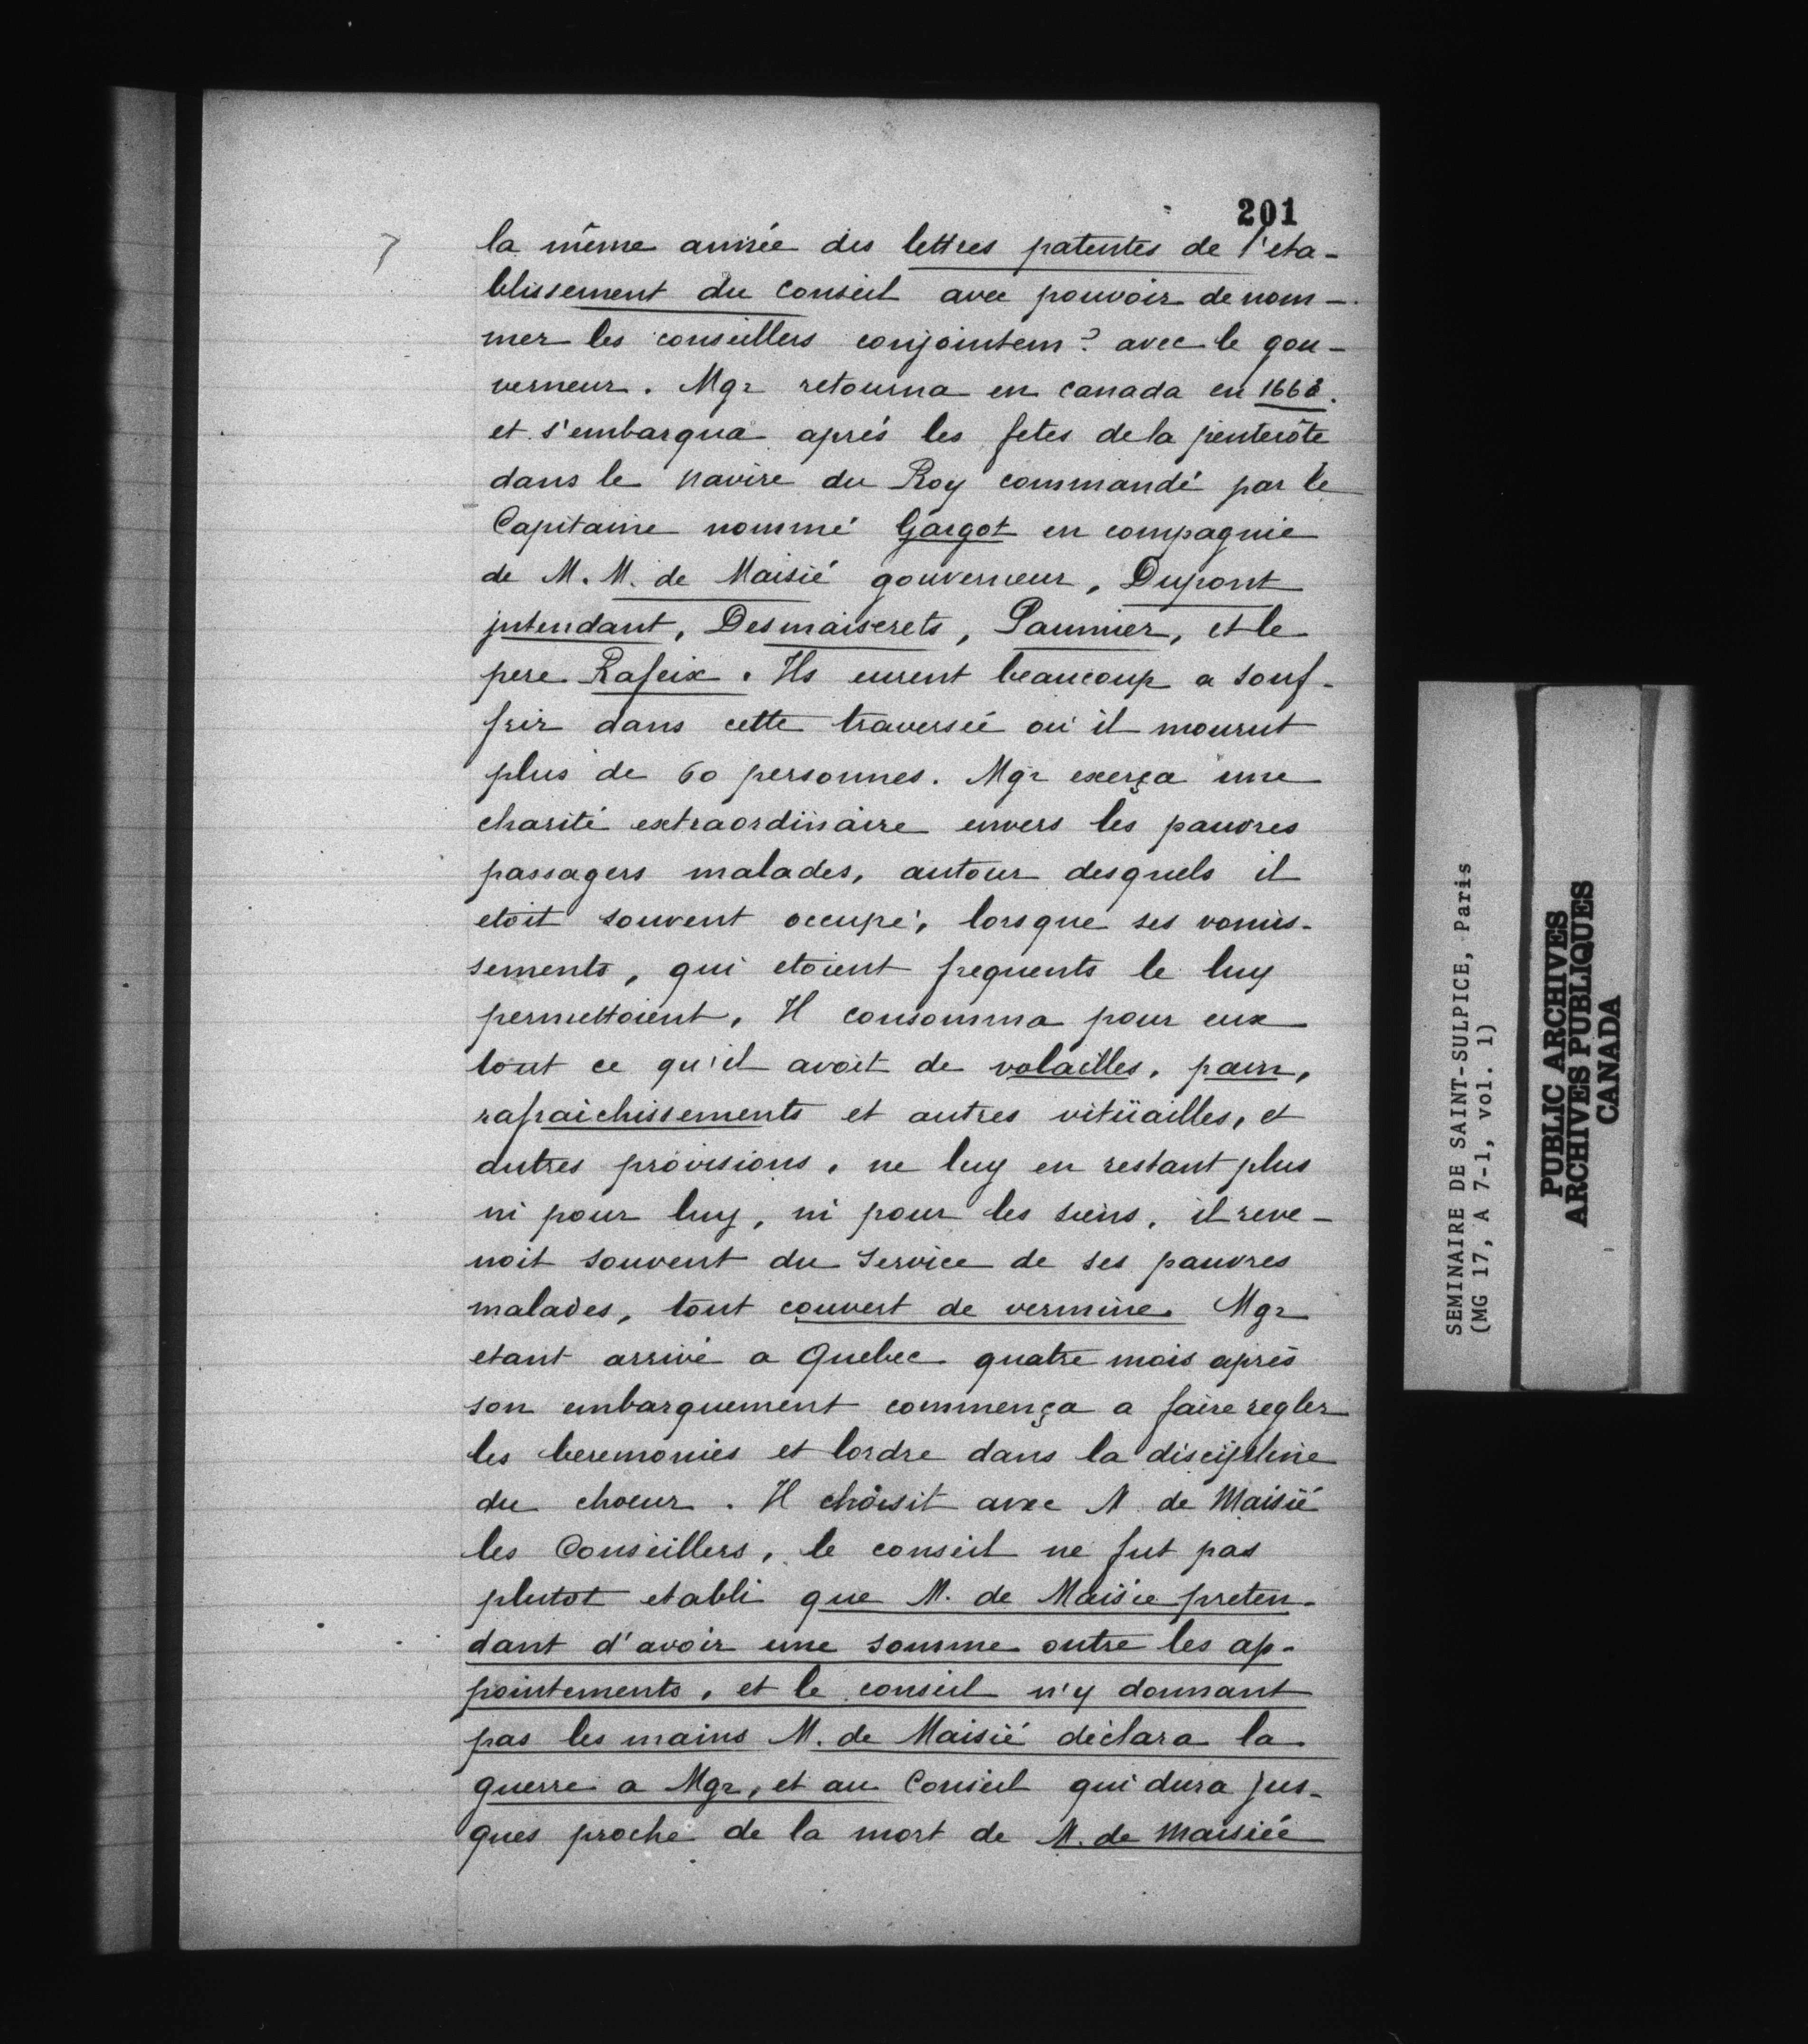 201
7
la même année des lettres patentes de l'eta-
blissement du conseil avec pouvoir de nom-
mer les conseillers conjointem? avec le gou-
verneur. Mgr retourna en canada en 1663.
et s'embarqua aprés les fetes de la pentecôte
dans le navire du Roy commandé par le
Capitaine nommé Gargot en compagnie
de M. M. de Maisié gouverneur, Dupont
jntendant, Desmaiserets, Paumier, et le
pere Rafeix. Ils eurent beaucoup a souf-
frir dans cette traverseé où il mourut
plus de 60 personnes. Mgr exerça une
charité extraordinaire envers les pauvres
passagers malades, autour desquels il
etoit souvent occupé, lorsque ses vomis-
sements, qui etoient frequents le luy
permettoient. Il consomma pour eux
tout ce qu'il avoit de volailles, pain,
rafraichissements et autres vitüailles, et
autres provisions, ne luy en restant plus
ni pour luy, ni pour les siens, il reve-
noit souvent du service de ses pauvres
malades, tout couvert de vermine. Mgr
etant arrivé a Quebec quatre mois aprés
son embarquement commença a faire regler
les ceremonies et lordre dans la discipline
du choeur. Il choisit avec M. de Maisié
les Conseillers, le conseil ne fut pas
plutot etabli que M. de Maisie preten-
dant d'avoir une somme outre les ap-
pointements, et le conseil n'y donnant
pas les mains M. de Maisié déclara la
guerre a Mgr, et au Conseil qui dura jus-
ques proche de la mort de M. de Maisiée
SEMINAIRE DE SAINT-SULPICE, Paris
(MG 17, A 7-1, vol. 1)
PUBLIC ARCHIVES
ARCHIVES PUBLIQUES
CANADA